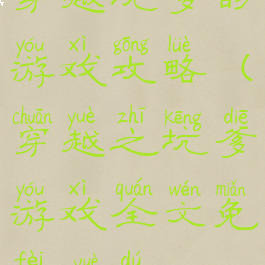 yóu xì gōng lüè
游戏攻略（
chuān yuè zhī kēng diē
穿越之坑爹
yóu xì quán wén miǎn
游戏全文免
fèi yuè dú